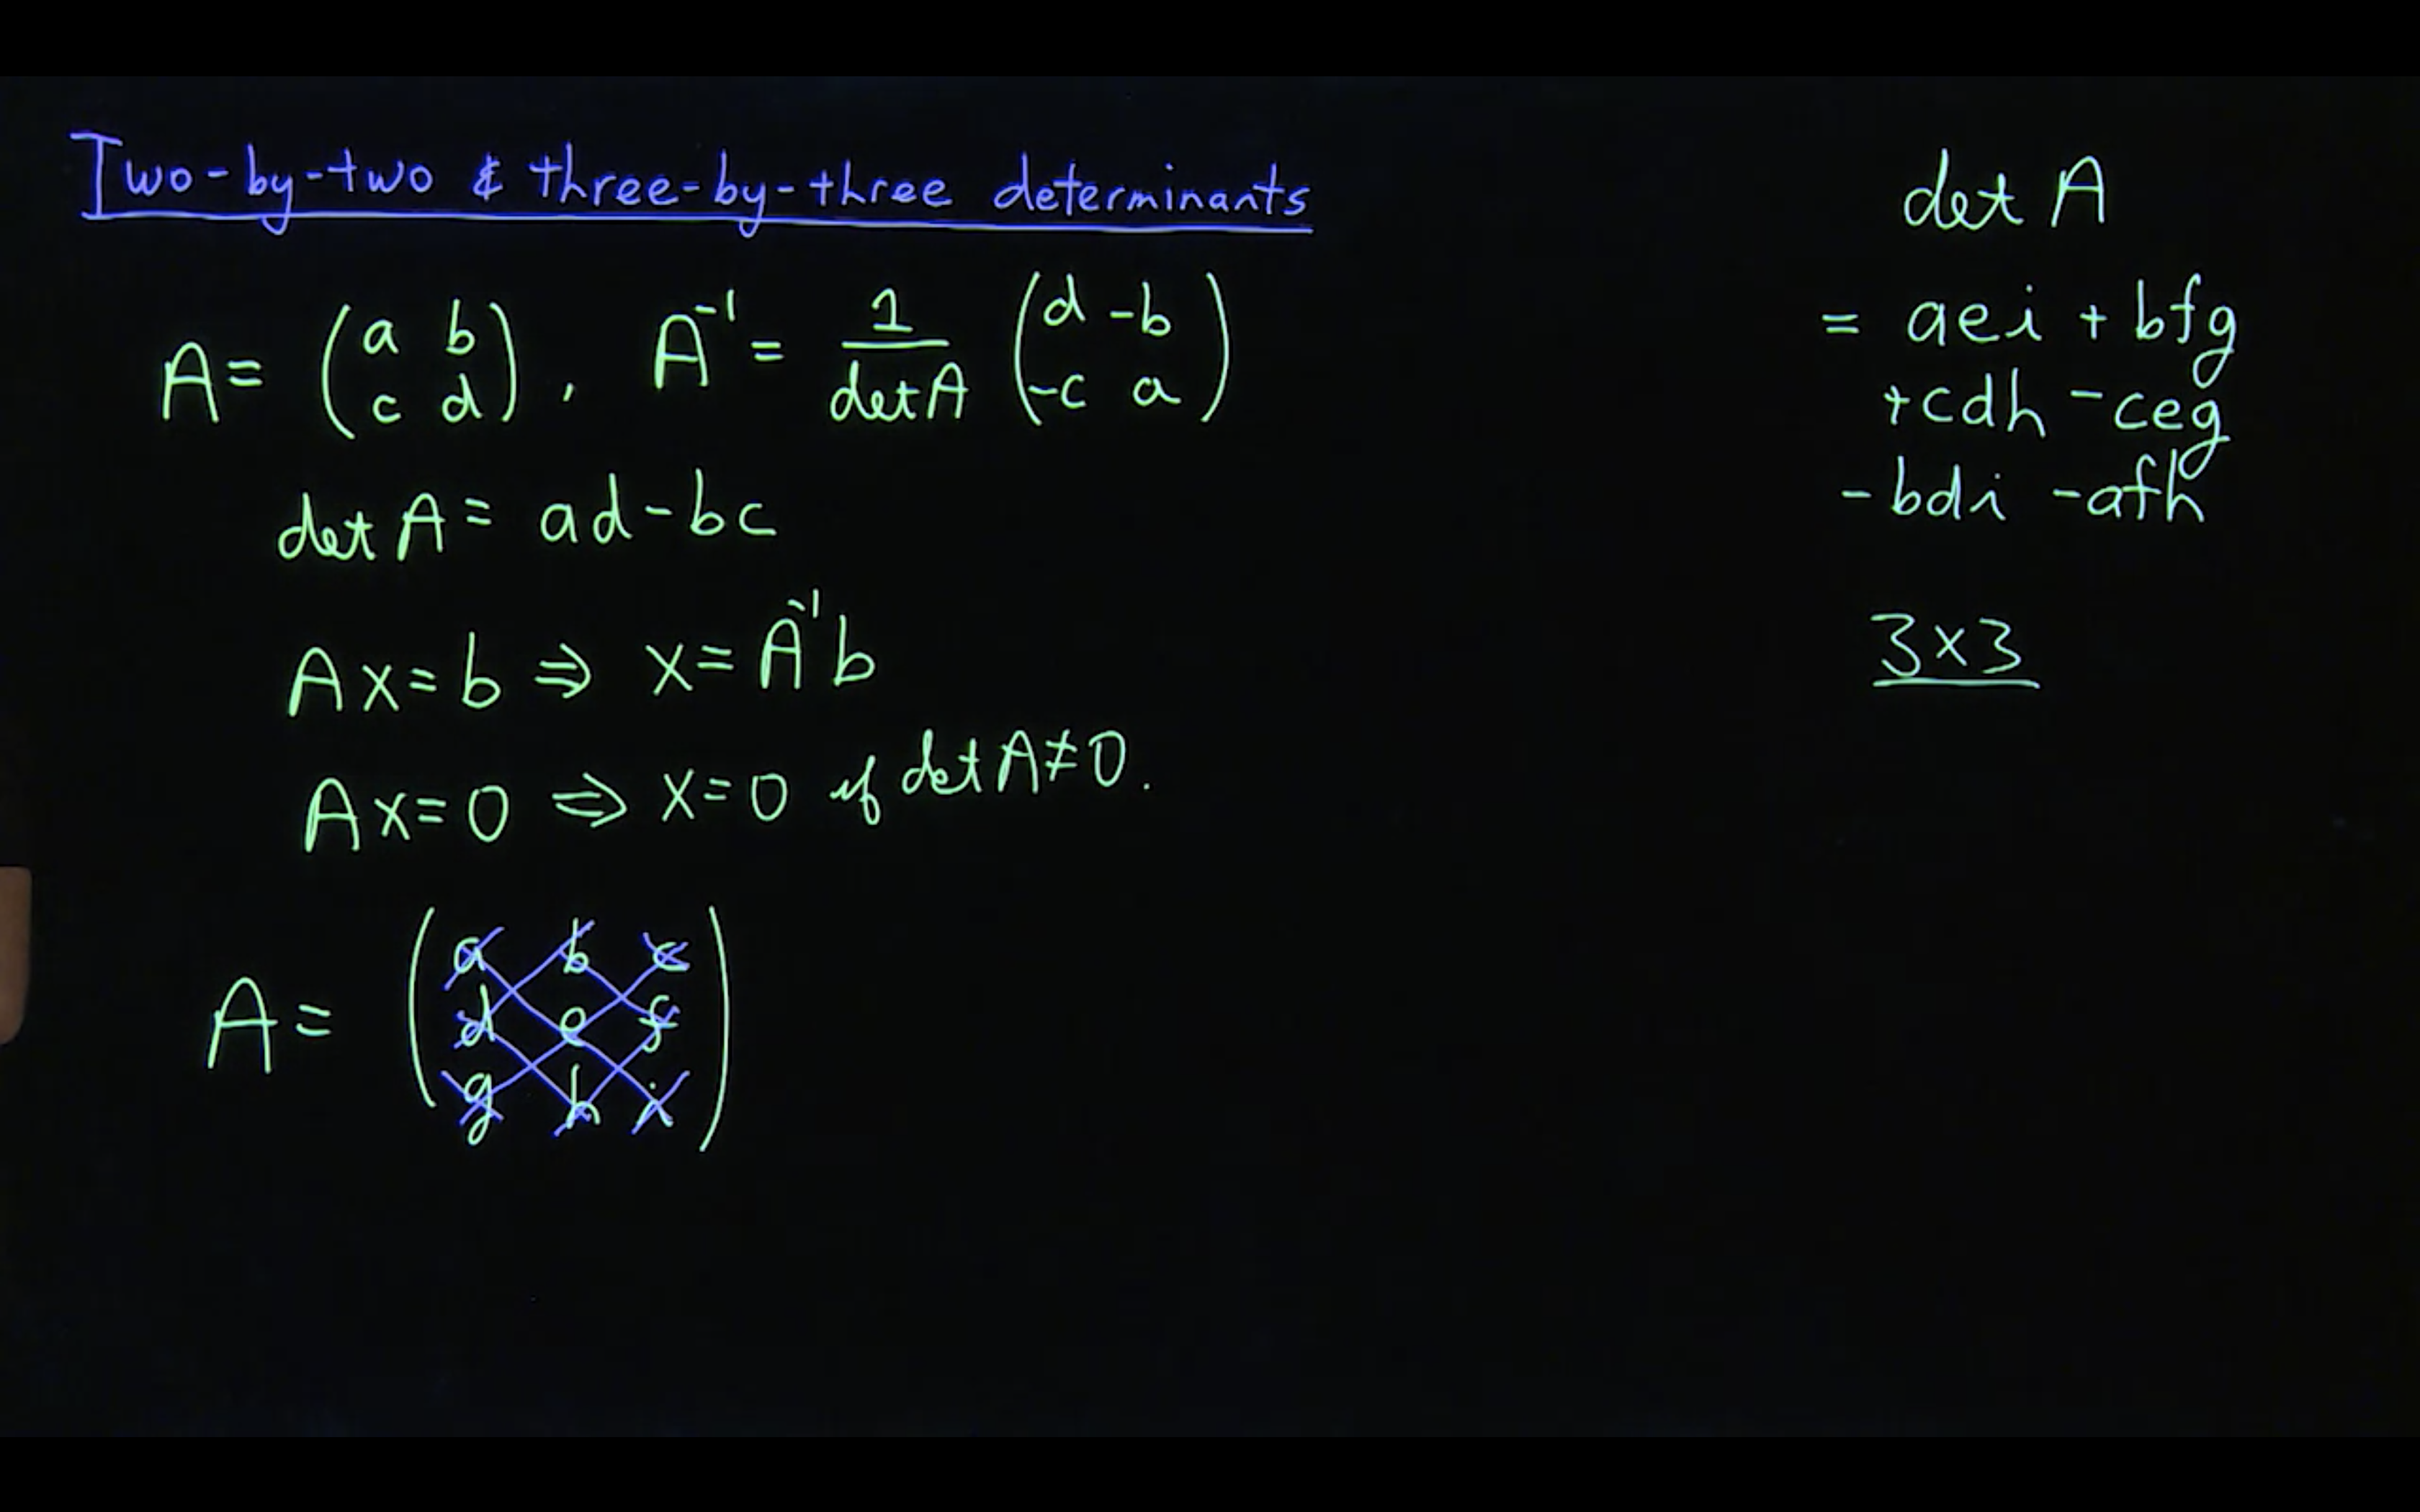 Two-by-two & three-by-three determinants
A = ( a b
c d ) , A⁻¹ = 1 / det A ( d -b
-c a )
det A = ad - bc
Ax = b ⇒ x = A⁻¹b
Ax = 0 ⇒ x = 0 if det A ≠ 0.
A = ( a b c
d e f
g h i )
det A
= aei + bfg
+cdh - ceg
- bdi - afh
3×3